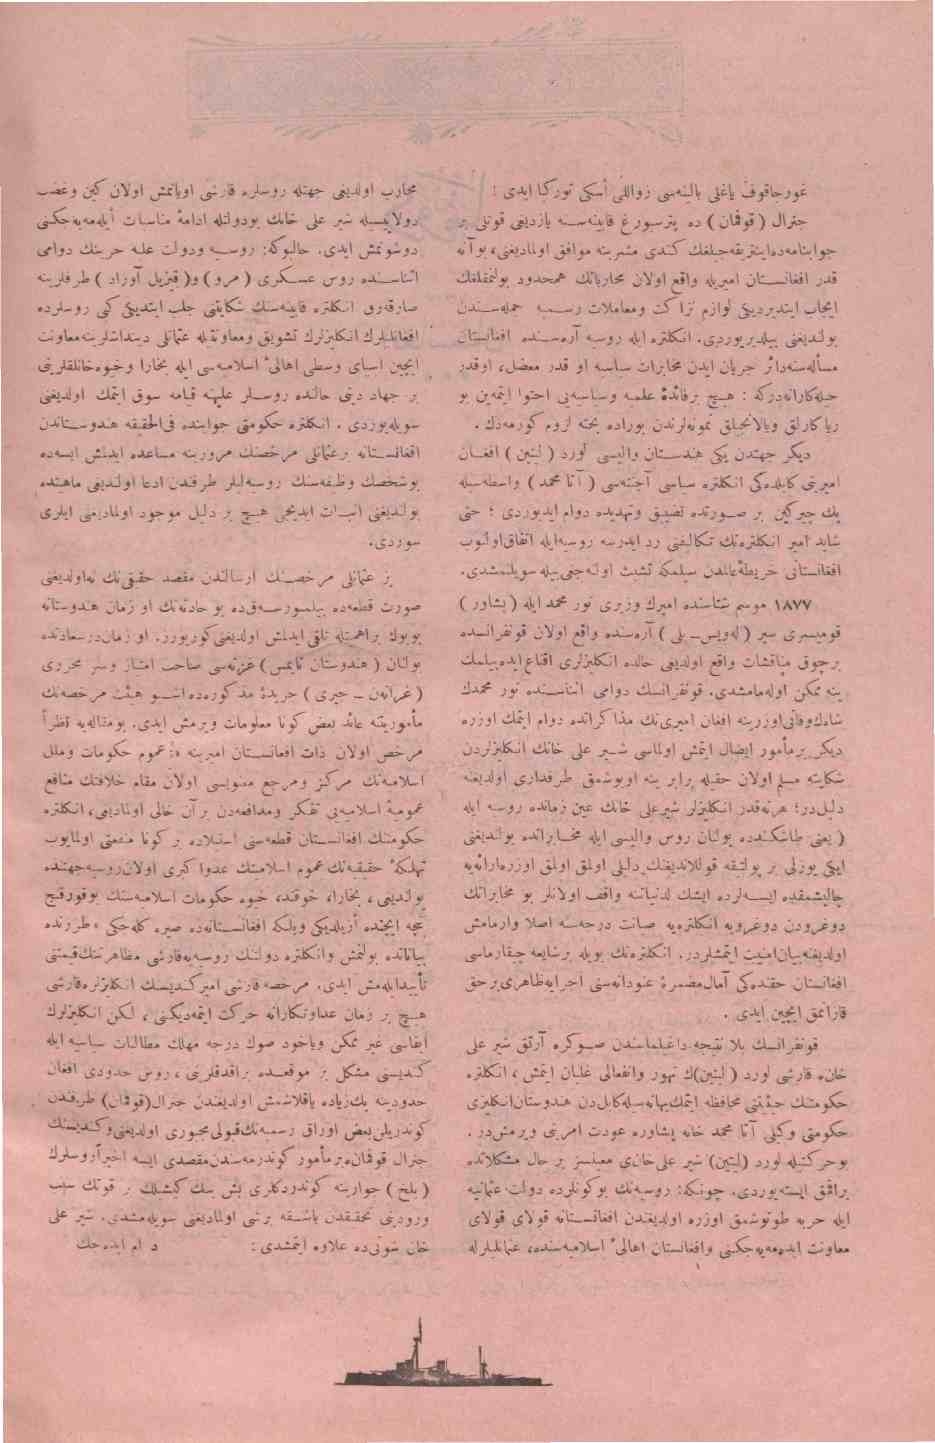 غورجاقوف ياغلى بالينه‌سى زواللى أسكى توركيا ايدى :
جنرال ( قوفمان ) ده پترسبورغ قابينه‌سنه يازديغى قوتلى بر
جوابنامه‌ده اينتريقه‌جيلغك كندى مشربنه موافق اولماديغنى، بو آنه
قدر افغانستان اميريله واقع اولان مخابراتك همحدود بولنمقلغك
ايجاب ايتديرديكى لوازم نزاكت ومعاملات رسميه جمله‌سندن
بولنديغنى بيلديريوردى. انكلتره ايله روسيه آره‌سنده افغانستان
مسأله‌سنه دائر جريان ايدن مخابرات سياسيه او قدر معضل، اوقدر
حيله‌كارانه‌دركه : هيچ برفائدهٔ علميه وسياسيه‌يى احتوا ايتمه‌ين بو
رياكارلق ويالانجيلق نمونه‌لرندن بوراده بحثه لزوم كورمه‌دك .
ديكر جهتدن يكى هندستان واليسى لورد ( ليتين ) افغان
اميرينى كابلده‌كى انكلتره سياسى آجنته‌سى ( آتا محمد ) واسطه‌سيله
پك چيركين بر صورتده تضييق وتهديده دوام ايديوردى ؛ حتى
شايد امير انكلتره‌نك تكاليفنى رد ايدرسه روسيه‌ايله اتفاق اولنوب
افغانستانى خريطهٔ عالمدن سيلمكه تشبث اولنه‌جغى بيله سويلنمشدى.
١٨٧٧ موسم شتاسنده اميرك وزيرى نور محمد ايله ( پشاور )
قوميسرى سير ( له‌ويس ـ پلى ) آره‌سنده واقع اولان قونفرانسده
برچوق مناقشات واقع اولديغى حالده انكليزلرى اقناع ايده‌بيلمك
ينه ممكن اوله‌مامشدى. قونفرانسك دوامى اثناسنده نور محمدك
وفاتى اوزرينه افغان اميرى‌نك مذاكراتده دوام ايتمك اوزره
ديكر برمأمور ايصال ايتمش اولماسى شير على خانك انكليزلردن
شكايته مسلم اولان حقيله برابر ينه اويوشمق طرفدارى اولديغنه
دليلدر؛ هرنه‌قدر انكليزلر شيرعلى خانك عين زمانده روسيه ايله
( يعنى طاشكندده بولنان روس واليسى ايله مخابراتده بولنديغنى
ايكى يوزلى بر پولتيقه قوللانديغنك دليلى اولمق اولمق اوزره‌ارائه‌يه
چاليشمقده ايسه‌لرده ايشك لدنياتنه واقف اولانلر بو مخابراتك
دوغريدن دوغرويه انكلتره‌يه صيانت درجه‌سنه اصلا وارمامش
اولديغنه بيان امنيت ايتمشلردر. انكلتره‌نك بويله برشايعه چيقارماسى
افغانستان حقنده‌كى آمال مضمرهٔ عنودانه‌سنى اجرايه ظاهرى برحق
قازانمق ايچين ايدى .
قونفرانسك بلا نتيجه داغيلماسندن صوكره آرتق شير على
خانه قارشى لورد ( ليتين)ك تهور وانفعالى غليان ايتمش ، انكلتره
حكومتنك حيثيتنى محافظه ايتمك بهانه‌سيله كابل‌دن هندوستان انكليزى
حكومتى وكيلى آتا محمد خانه پشاوره عودت امرينى ويرمش‌در .
بو حركتيله لورد (ليتين) شير على خان‌ى معينسز بر حال مشكلاتده
براقمق ايسته‌يوردى. چونكه: روسيه‌نك بوكونلرده دولت عثمانيه
ايله حربه طوتوشمق اوزره اولديغندن افغانستانه قولاى قولاى
معاونت ايده‌ميه‌جكنى وافغانستان اهالى ٔ اسلاميه‌سنده، عثمانليلرله
محارب اولديغى جهتله روسلره قارشى اويانمش اولان كين وغضب
دولاييسيله شير على خانك بودولتله ادامهٔ مناسبات ايله‌مه‌يه‌جكنى
دوشونمش ايدى. حالبوكه: روسيه ودولت عليه حربنك دوامى
اثناسنده روس عسكرى ( مرو ) و( قيزيل آوراد ) طرفلرينه
صارقه‌رق انكلتره قابينه‌سنك شكايتنى جلب ايتديكى كى روسلرده
افغانليلرك انكليزلرك تشويق ومعاونتيله عثمانلى دينداشلرينه معاونت
ايچين اسياى وسطى اهالى ٔ اسلاميه‌سى ايله بخارا وخيوه خانلقلرينى
بر جهاد دينى حالنده روسلر عليهنه قيامه سوق ايتمك اولديغنى
سويله‌يوردى . انكلتره حكومتى جوابنده فى‌الحقيقه هندوستاندن
افغانستانه برعثمانلى مرخصنك مرورينه مساعده ايدلمش ايسه‌ده
بو شخصك وظيفه‌سنك روسيه‌ليلر طرفندن ادعا اولنديغى ماهيتده
بولنديغنى اثبات ايديجى هيچ بر دليل موجود اولماديغنى ايلرى
سوردى.
بز عثمانلى مرخصنك ارسالندن مقصد حقيقى‌نك نه‌اولديغنى
صورت قطعه‌ده بيلميورسه‌ق‌ده بو حادثه‌نك او زمان هندوستانه
بويوك براهميتله تلقى ايدلمش اولديغنى كورييورز. او زمان‌درسعادتده
بولنان ( هندوستان تايمس ) غزته‌سى صاحب امتياز وسر محررى
جريدهٔ مذكوره‌ده اشبو هيئت مرخصه‌نك
مأموريتنه عائد بعض كونا معلومات ويرمش ايدى. بومقاله‌يه نظراً
مرخص اولان ذات افغانستان اميرينه «: عموم حكومات وملل
اسلاميه‌نك مركز ومرجع معنويسى اولان مقام خلافتك منافع
عموميهٔ اسلاميه‌يى تفكر ومدافعه‌دن بر آن خالى اولماديغى، انكلتره
حكومتنك افغانستان قطعه‌سنى استيلاده بر كونا منفعتى اولمايوب
تهلكهٔ حقيقيه‌نك عموم اسلامتك عدوا كبرى اولان روسيه جهتنده
بولنديغى ، بخارا، خوقند، خيوه حكومات اسلاميه‌سنك بوقورقنج
ايچنده أزيلديكى ويلكه افغانستانه‌ده صره كله‌جكى » طرزنده
بياناتده بولنمش وانكلتره دولتنك روسيه‌يه قارشى مظاهرتنك قيمتنى
تأييدايله‌مش ايدى. مرخصه قارشى اميركنديسنك انكليزلره قارشى
هيچ بر زمان عداوتكارانه حركت ايتمه‌ديكنى ، لكن انكليزلرك
ايفاسى غير ممكن وياخود صوك درجه مهلك مطالبات سياسيه ايله
كنديسنى مشكل بر موقعده براقدقلرينى ، روس حدودى افغان
حدودينه پك‌زياده ياقلاشمش اولديغندن جنرال(قوفمان) طرفندن
كوندريلن بعض اوراق رسميه‌نك قبولى مجبورى اولديغنى وكنديسنك
جنرال قوفمانه برمأمور كوندرمه‌سندن مقصدى ايسه اخيراً روسلرك
( بلخ ) جوارينه كوندردكلرى بش بيك كيشيلك بر قوتك سبب
ورودينى تحقيقدن باشقه برشى اولماديغنى سويله‌مشدى. شير على
خان شونى‌ده علاوه ايتمشدى : دوام ايده‌جك